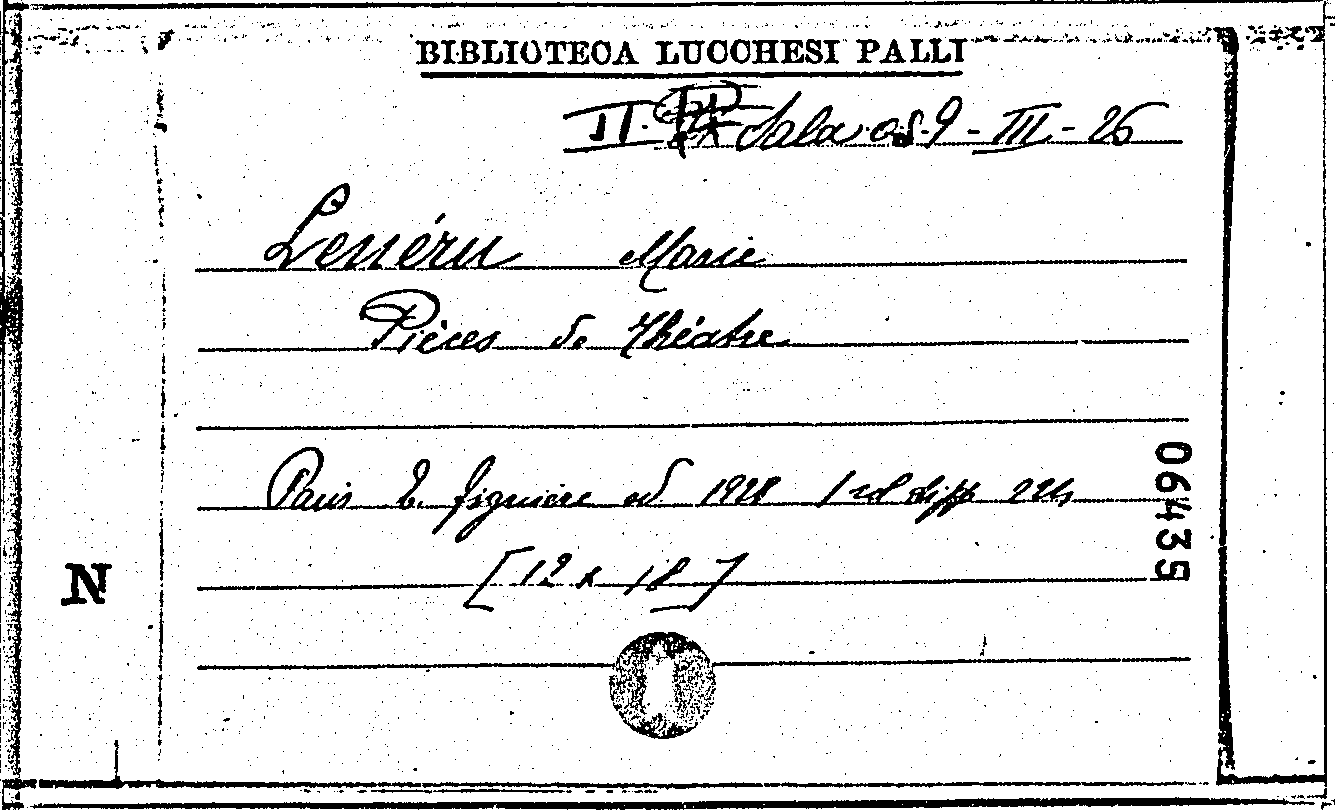 BIBLIOTECA LUCCHESI PALLI
II. Sala 9 - III - 26
Lenéru Marie
Pièces de Théatre
Paris E. figuière ed 1928 1 vol di pp 224
[12 x 18]
06439
N